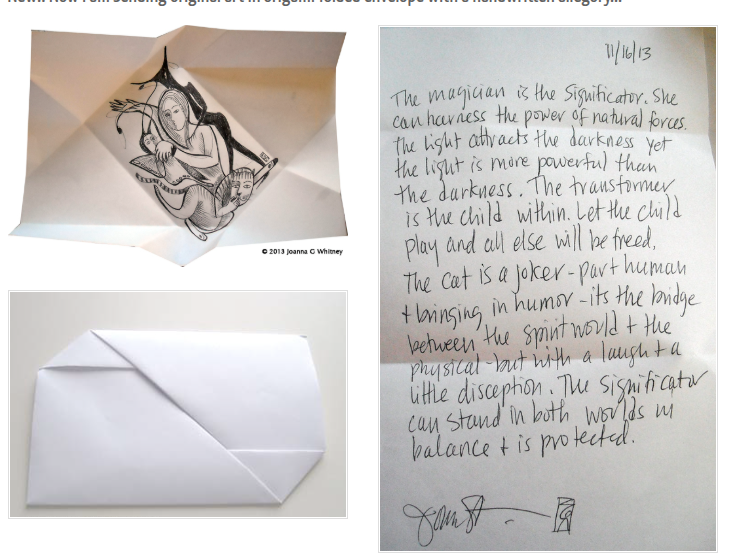 Now I am sending original art in origami folded envelope with a handwritten allegory...
© 2013 Joanna G Whitney
11/16/13
The magician is the Significator. She
can harness the power of natural forces.
The light attracts the darkness yet
the light is more powerful than
the darkness. The transformer
is the child within. Let the child
play and all else will be freed.
The cat is a joker-part human
+ bringing in humor-its the bridge
between the spirit world + the
physical-but with a laugh + a
little disception. The significator
can stand in both worlds in
balance + is protected.